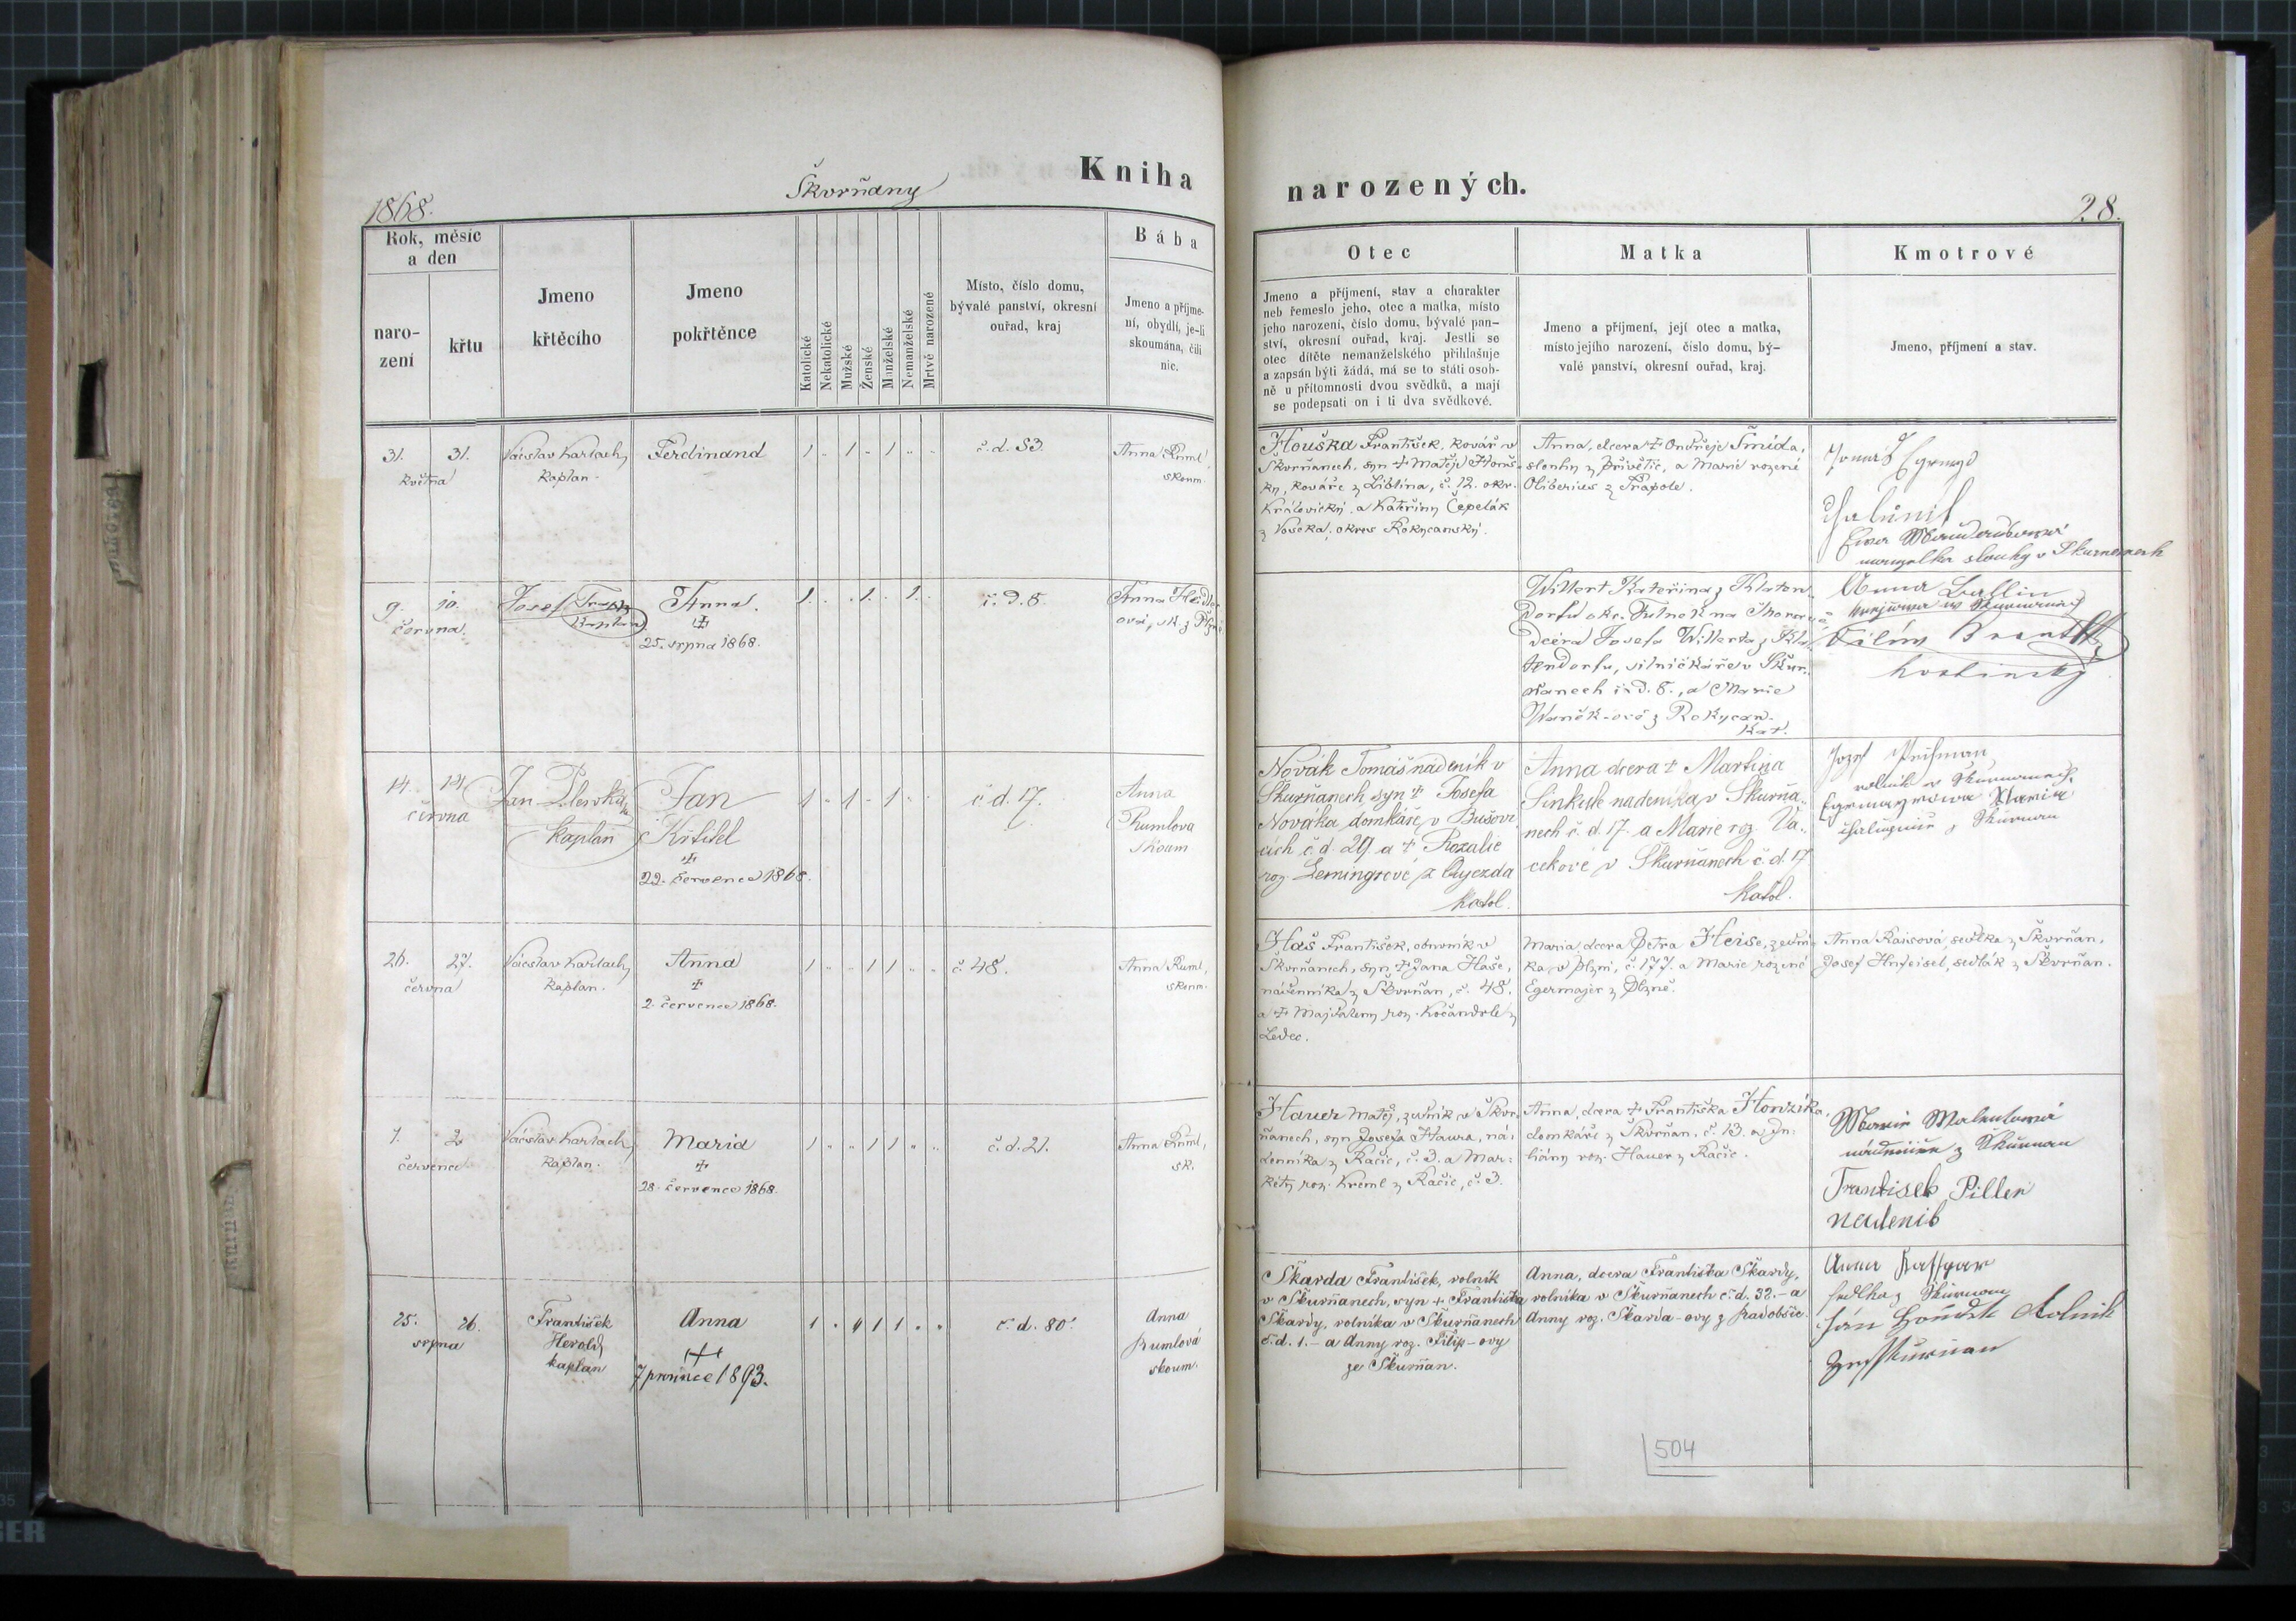 1868.
Škvrňany
Kniha
narozených.
28.
Rok, měsíc
a den
naro-
zení
křtu
Jmeno
křtěcího
Jmeno
pokřtěnce
Katolické
Nekatolické
Mužské
Ženské
Manželské
Nemanželské
Mrtvě narozené
Místo, číslo domu,
bývalé panství, okresní
ouřad, kraj
Bába
Jmeno a příjme-
ní, obydlí, je-li
skoumána, čili
nic.
Otec
Jmeno a příjmení, stav a charakter
neb řemeslo jeho, otec a matka, místo
jeho narození, číslo domu, bývalé pan-
ství, okresní ouřad, kraj. Jestli se
otec dítěte nemanželského přihlašuje
a zapsán býti žádá, má se to státi osob-
ně u přítomnosti dvou svědků, a mají
se podepsati on i ti dva svědkové.
Matka
Jmeno a příjmení, její otec a matka,
místo jejího narození, číslo domu, bý-
valé panství, okresní ouřad, kraj.
Kmotrové
Jmeno, příjmení a stav.
31. 31.
května
Václav Karlach,
kaplan.
Ferdinand
1 " 1 " 1 " "
č. d. 53.
Anna Ruml,
skoum.
Houška František, kovář v
Škvrňanech, syn † Matěje Houš-
ky, kováře z Liblína, č. 12. okr.
Královický. a Kateřiny Čepelák
z Voseka, okres Rokycanský.
Anna, dcera † Ondřeje Šmída,
slouhy z Přívětic, a Marie rozené
Oliberius z
9. 10.
června.
Josef
Kaplan
Anna.
†
25. srpna 1868.
1. . . 1. . 1.
č. d. 8.
Anna
ová, sk. z Plzně
Willert Kateřina z Klaten-
dorfu okr. Fulnek na Moravě
dcera Josefa Willerta z Kla-
tendorfu, silničkáře v Škur-
ňanech č. d. 8., a Marie
Waněk-ové z Rokycan.
Kat.
Anna
14. 14.
června
Jan
kaplan
Jan
Křtitel
†
22. července 1868.
1 " 1 " 1 " "
č. d. 17.
Anna
Rumlova
Skoum
Novák Tomáš nádeník v
Škurňanech, syn † Josefa
Nováka domkáře v Bušovi
cích č. d. 29. a † Rozalie
roz. z Oujezda
katol.
Anna dcera † Martina
Sinkule nadeníka v Škurňa-
nech č. d. 17. a Marie roz. Va-
cekové v Škurňanech č. d. 17
katol.
Jozef
rolník v
Maria
26. 27.
června
Václav Karlach,
kaplan.
Anna
†
2. července 1868.
1 " " 1 1 " "
č. 48.
Anna Ruml,
skoum.
Haš František, obuvník v
Škvrňanech, syn † Jana Haše,
nádenníka z Škvrňan, č. 48.
a † Majdaleny roz. Kočandrle z
Ledec.
Maria, dcera Petra Heise, zední-
ka v Plzni, č. 177. a Marie rozené
Egermajer z Plzně.
Anna Raisová, sedlka z Škvrňan,
Josef Hnfeisel, sedlák z Škvrňan.
1. 2.
července
Václav Karlach,
kaplan.
Maria
†
28. července 1868.
1 " " 1 1 " "
č. d. 21.
Anna Ruml,
sk.
Hauer Matěj, zedník v Škvr-
ňanech, syn Josefa Haura, ná-
denníka z Račic, č. 3. a Mar-
kéty roz. Kreml z Račic, č. 3.
Anna, dcera † Františka Honzíka,
domkáře z Škvrňan, č. 13. a Ju-
liány roz. Hauer z Račic.
František Piller
nadenik
25. 26.
srpna
František
Herold
kaplan
Anna
†
7 prosince 1893.
1 . " 1 1 . "
č. d. 80.
Anna
Rumlová
skoum.
Škarda František, rolník
v Škurňanech, syn † Františka
Škardy, rolníka v Škurňanech
č. d. 1. - a Anny roz. Filip-ovy
ze Škurňan.
Anna, dcera Františka Škardy,
rolníka v Škurňanech č. d. 32. - a
Anny roz. Škarda-ovy z Radobčic.
Anna
504